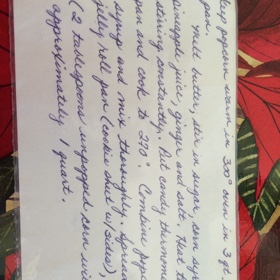 keep popcorn warm in 300° oven in 3 qt.
pan.
Melt butter, stir in sugar, corn syrup
pineapple juice, ginger and salt. Heat to
stirring constantly. Put candy thermom
pan and cook to 220°. Combine pop
syrup and mix thoroughly. Spread
jelly roll pan (cookie sheet w/sides),
(2 tablespoons unpopped corn will
approximately 1 quart.